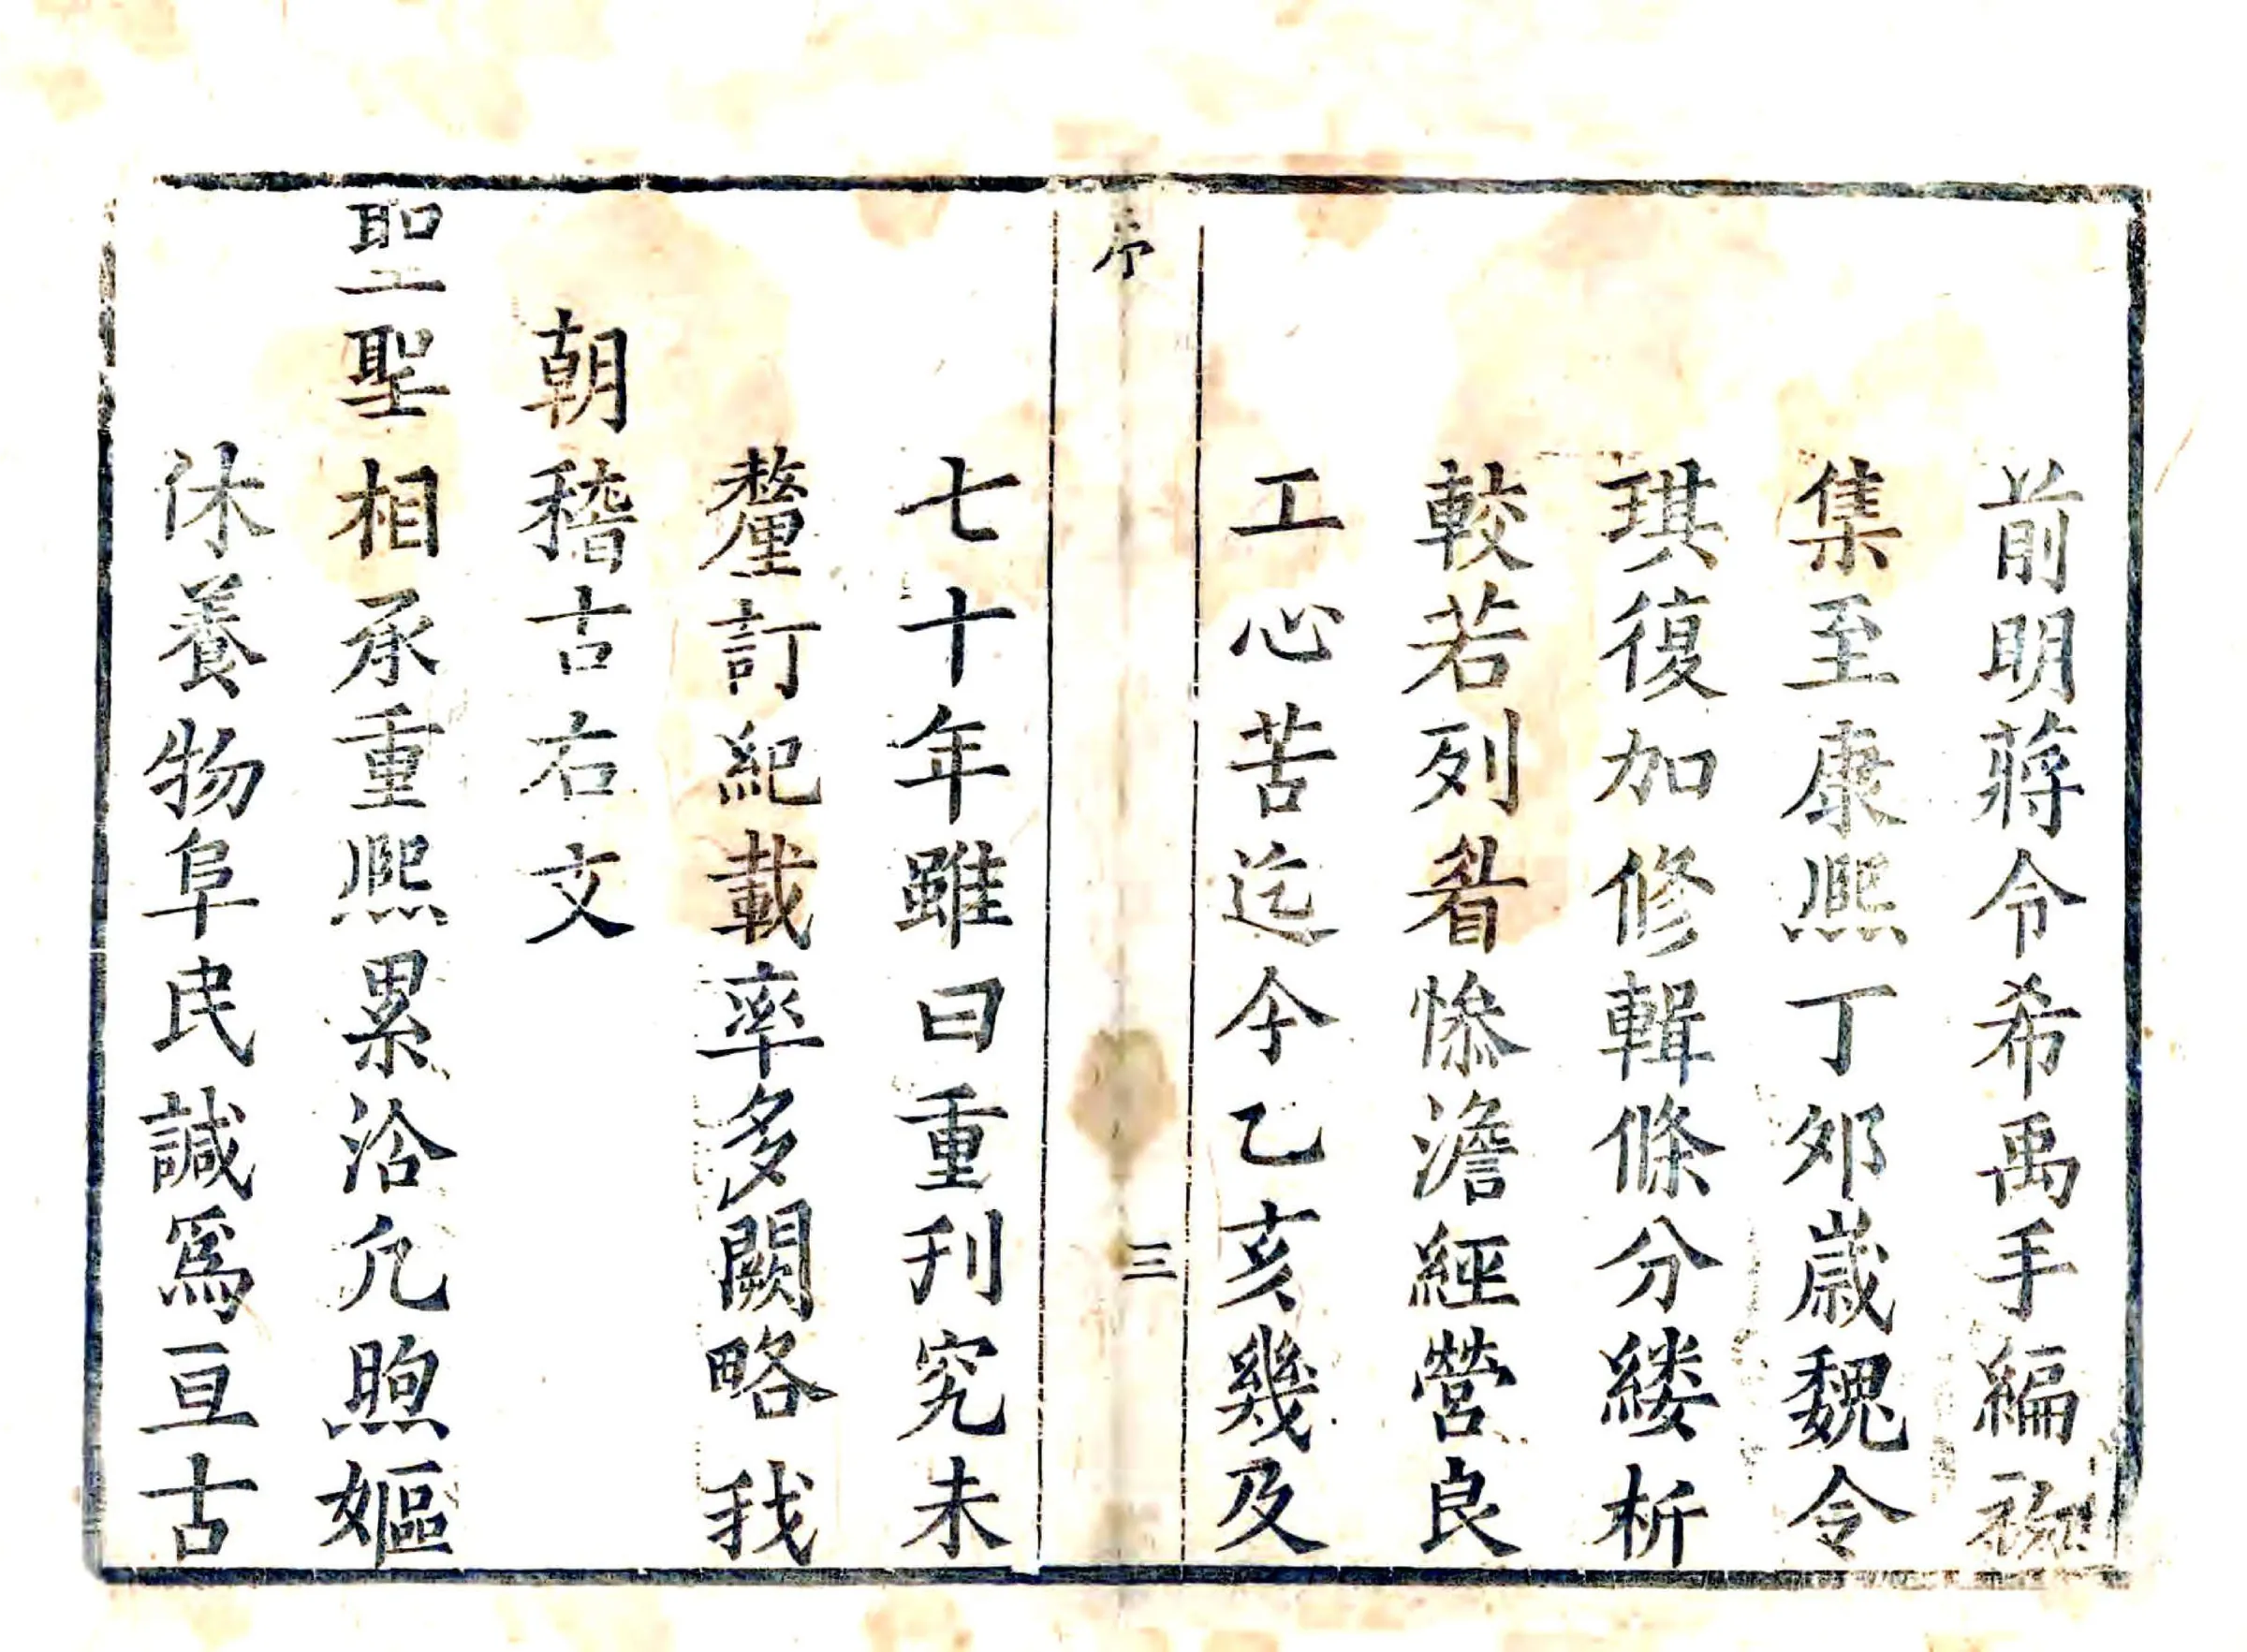 前明蔣令希禹手編
集至康熙丁卯歲魏令
琪復加修輯條分縷析
較若列眉慘澹經營良
工心苦迄今乙亥幾及
序
三
七十年雖曰重刊究未
釐訂紀載率多闕略我
朝稽古右文
聖聖相承重熙累洽凢煦嫗
休養物阜民諴爲亘古